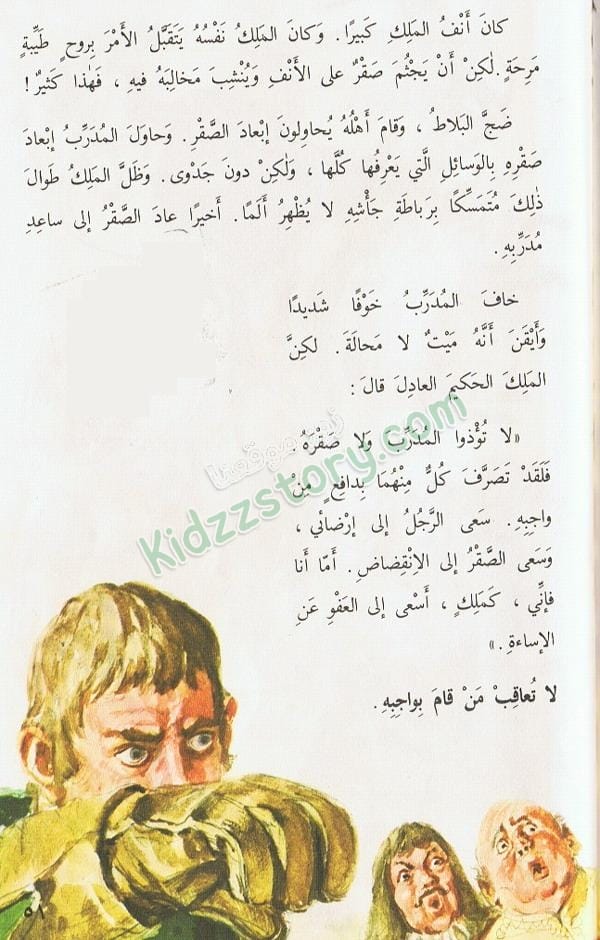 كانَ أَنْفُ المَلِكِ كَبيرًا. وَكانَ المَلِكُ نَفْسُهُ يَتَقَبَّلُ الأَمْرَ بِروحٍ طَيِّبةٍ
مَرِحَةٍ. لٰكِنْ أَنْ يَجْثُمَ صَقْرٌ على الأَنْفِ وَيُنْشِبَ مَخالِبَهُ فيهِ ، فَهٰذا كَثيرٌ !
ضَجَّ البَلاطُ ، وَقامَ أَهْلُهُ يُحاوِلونَ إبْعادَ الصَّقْرِ. وَحاوَلَ المُدَرِّبُ إبْعادَ
صَقْرِهِ بِالوَسائِلِ الَّتي يَعْرِفُها كُلَّها ، وَلٰكِنْ دونَ جَدْوى. وَظَلَّ المَلِكُ طَوالَ
ذٰلِكَ مُتَمَسِّكًا بِرَباطَةِ جَأْشِهِ لا يُظْهِرُ أَلَمًا. أَخيرًا عادَ الصَّقْرُ إلى ساعِدِ
مُدَرِّبِهِ.
خافَ المُدَرِّبُ خَوْفًا شَديدًا
وَأَيْقَنَ أَنَّهُ مَيْتٌ لا مَحالَةَ. لكِنَّ
المَلِكَ الحَكيمَ العادِلَ قالَ :
«لا تُؤْذوا المُدَرِّبَ وَلا صَقْرَهُ
فَلَقَدْ تَصَرَّفَ كُلٌّ مِنْهُمَا بِدافِعٍ مِنْ
واجِبِهِ. سَعى الرَّجُلُ إلى إرْضائي ،
وَسَعى الصَّقْرُ إلى الاِنْقِضاضِ. أَمّا أَنا
فَإنّي ، كَمَلِكٍ ، أَسْعى إلى العَفْوِ عَنِ
الإساءةِ.»
لا تُعاقِبْ مَنْ قامَ بِواجِبِهِ.
زوروا موقعنا
Kidzzstory.com
٥٨